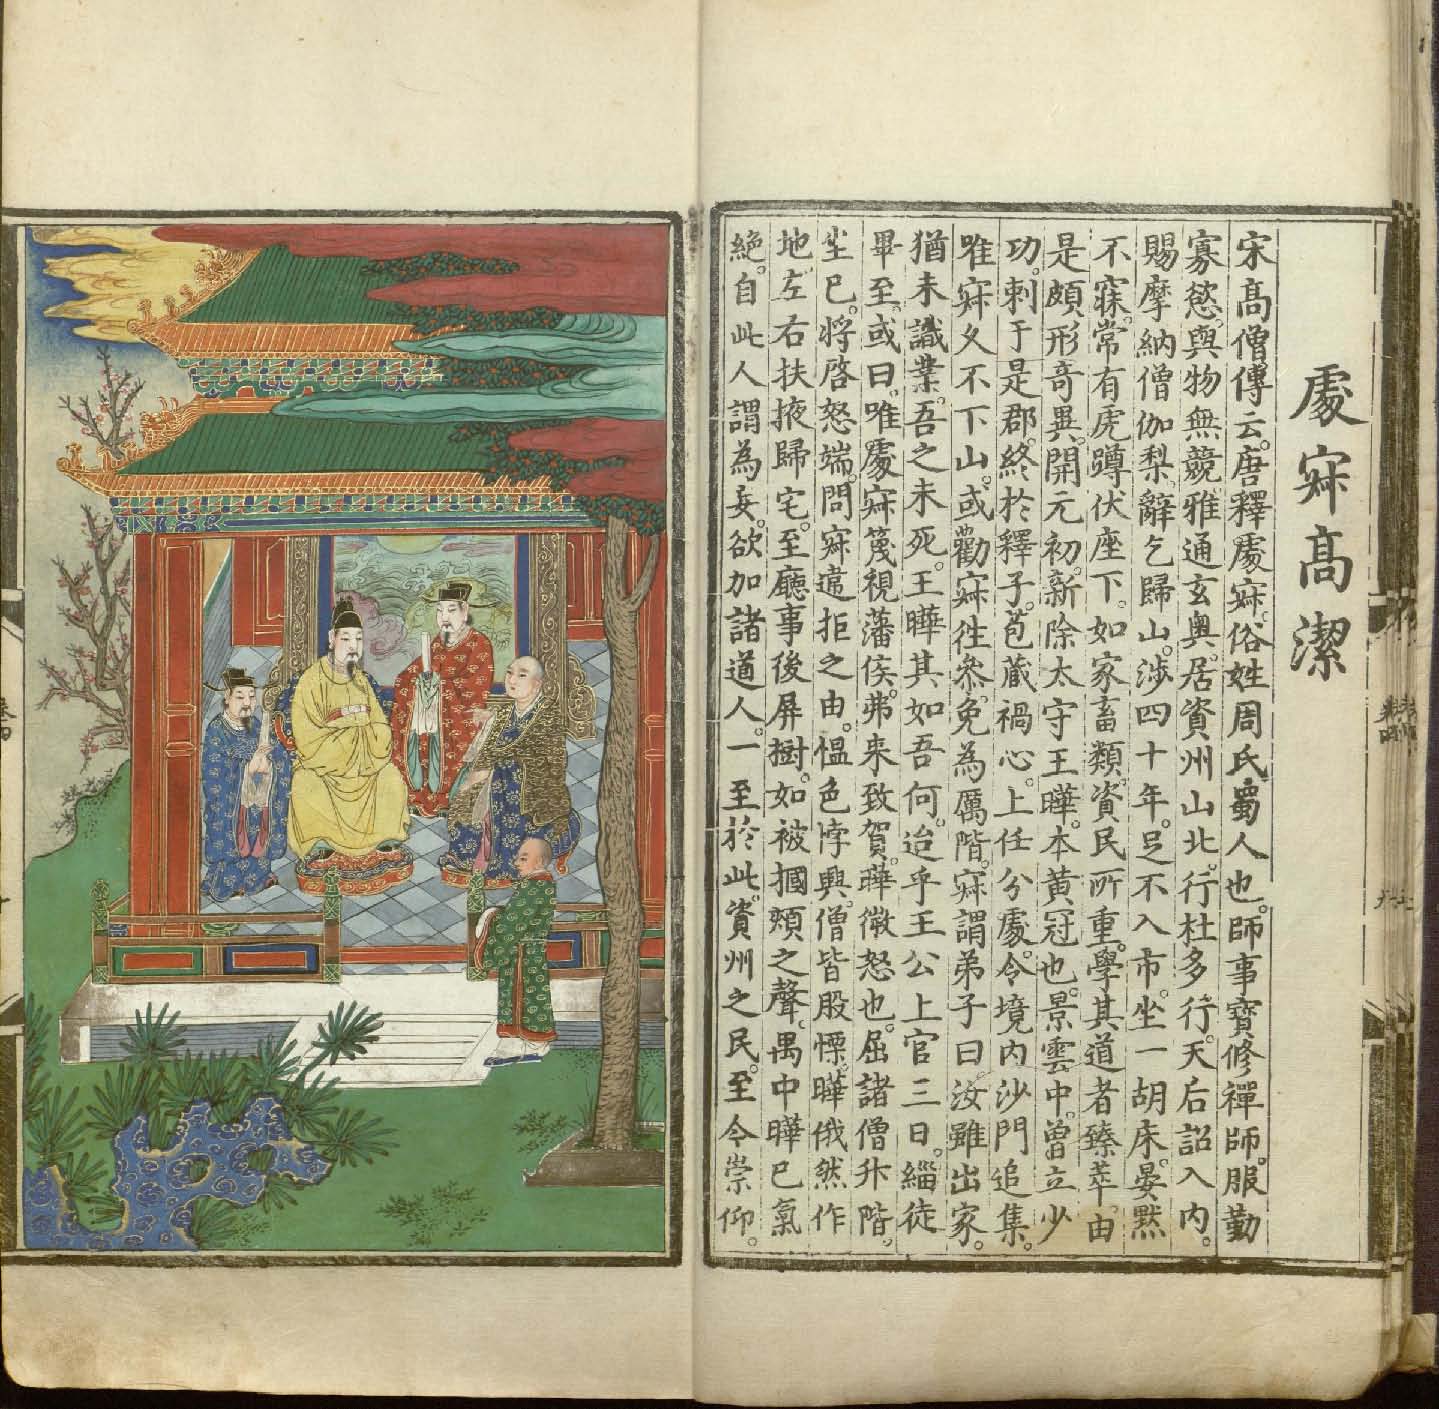 處寂高潔
宋高僧傳云。唐釋處寂。俗姓周氏。蜀人也。師事寶修禪師。服勤
寡慾。與物無競。雅通玄奧。居資州山北。行杜多行。天后詔入內。
賜摩納僧伽梨。辭乞歸山。涉四十年。足不入市。坐一胡床。宴默
不寐。常有虎蹲伏座下。如家畜類。資民所重。學其道者臻萃。由
是頗形奇異。開元初。新除太守王曄。本黃冠也。景雲中。曾立少
功。刺于是郡。終於釋子。苞藏禍心。上任分處。令境內沙門追集。
唯寂久不下山。或勸寂往參。免為厲階。寂謂弟子曰。汝雖出家。
猶未識業。吾之未死。王曄其如吾何。迨乎王公上官三日。緇徒
畢至。或曰。唯處寂蔑視藩侯。弗來致賀。曄微怒也。屈諸僧升階。
坐已。將啓怒端。問寂違拒之由。慍色悖興。僧皆股慄。曄俄然作
地。左右扶掖歸宅。至廳事後屏樹。如被摑頰之聲。禺中曄已氣
絕。自此人謂為妄。欲加諸道人。一至於此。資州之民。至今崇仰。
卷四